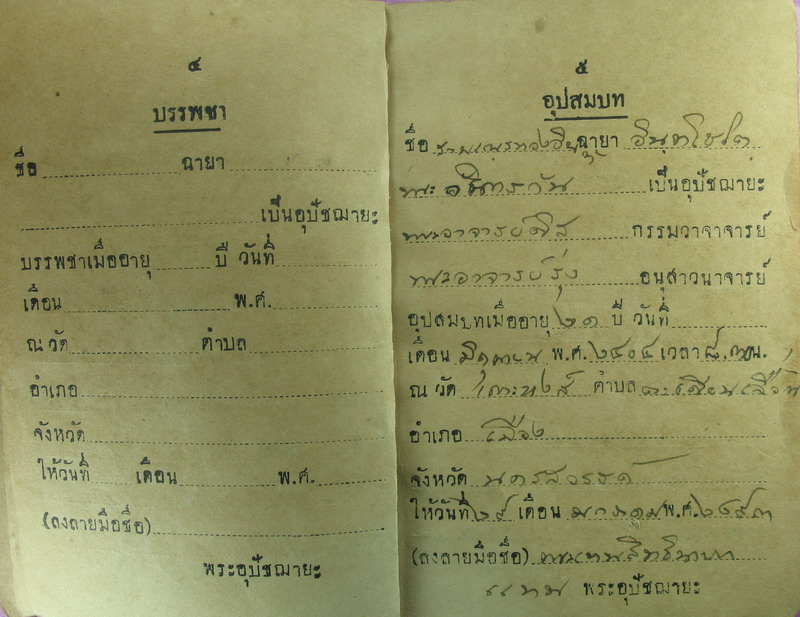 ๔
บรรพชา
ชื่อ ฉายา
เป็นอุปัชฌายะ
บรรพชาเมื่ออายุ ปี วันที่
เดือน พ.ศ.
ณ วัด ตำบล
อำเภอ
จังหวัด
ให้วันที่ เดือน พ.ศ.
(ลงลายมือชื่อ)
พระอุปัชฌายะ
๕
อุปสมบท
ชื่อ ฉายา อินฺทโชโต
พระ เป็นอุปัชฌายะ
พระอาจารย์ กรรมวาจาจารย์
พระอาจารย์รุ่ง อนุสาวนาจารย์
อุปสมบทเมื่ออายุ ๒๑ ปี วันที่
เดือน พ.ศ. เวลา น.
ณ วัด ตำบล ตะเคียนเลื่อน
อำเภอ เมือง
จังหวัด นครสวรรค์
ให้วันที่ ๒๙ เดือน พ.ศ. ๒๔๙๓
(ลงลายมือชื่อ)
แทน พระอุปัชฌายะ